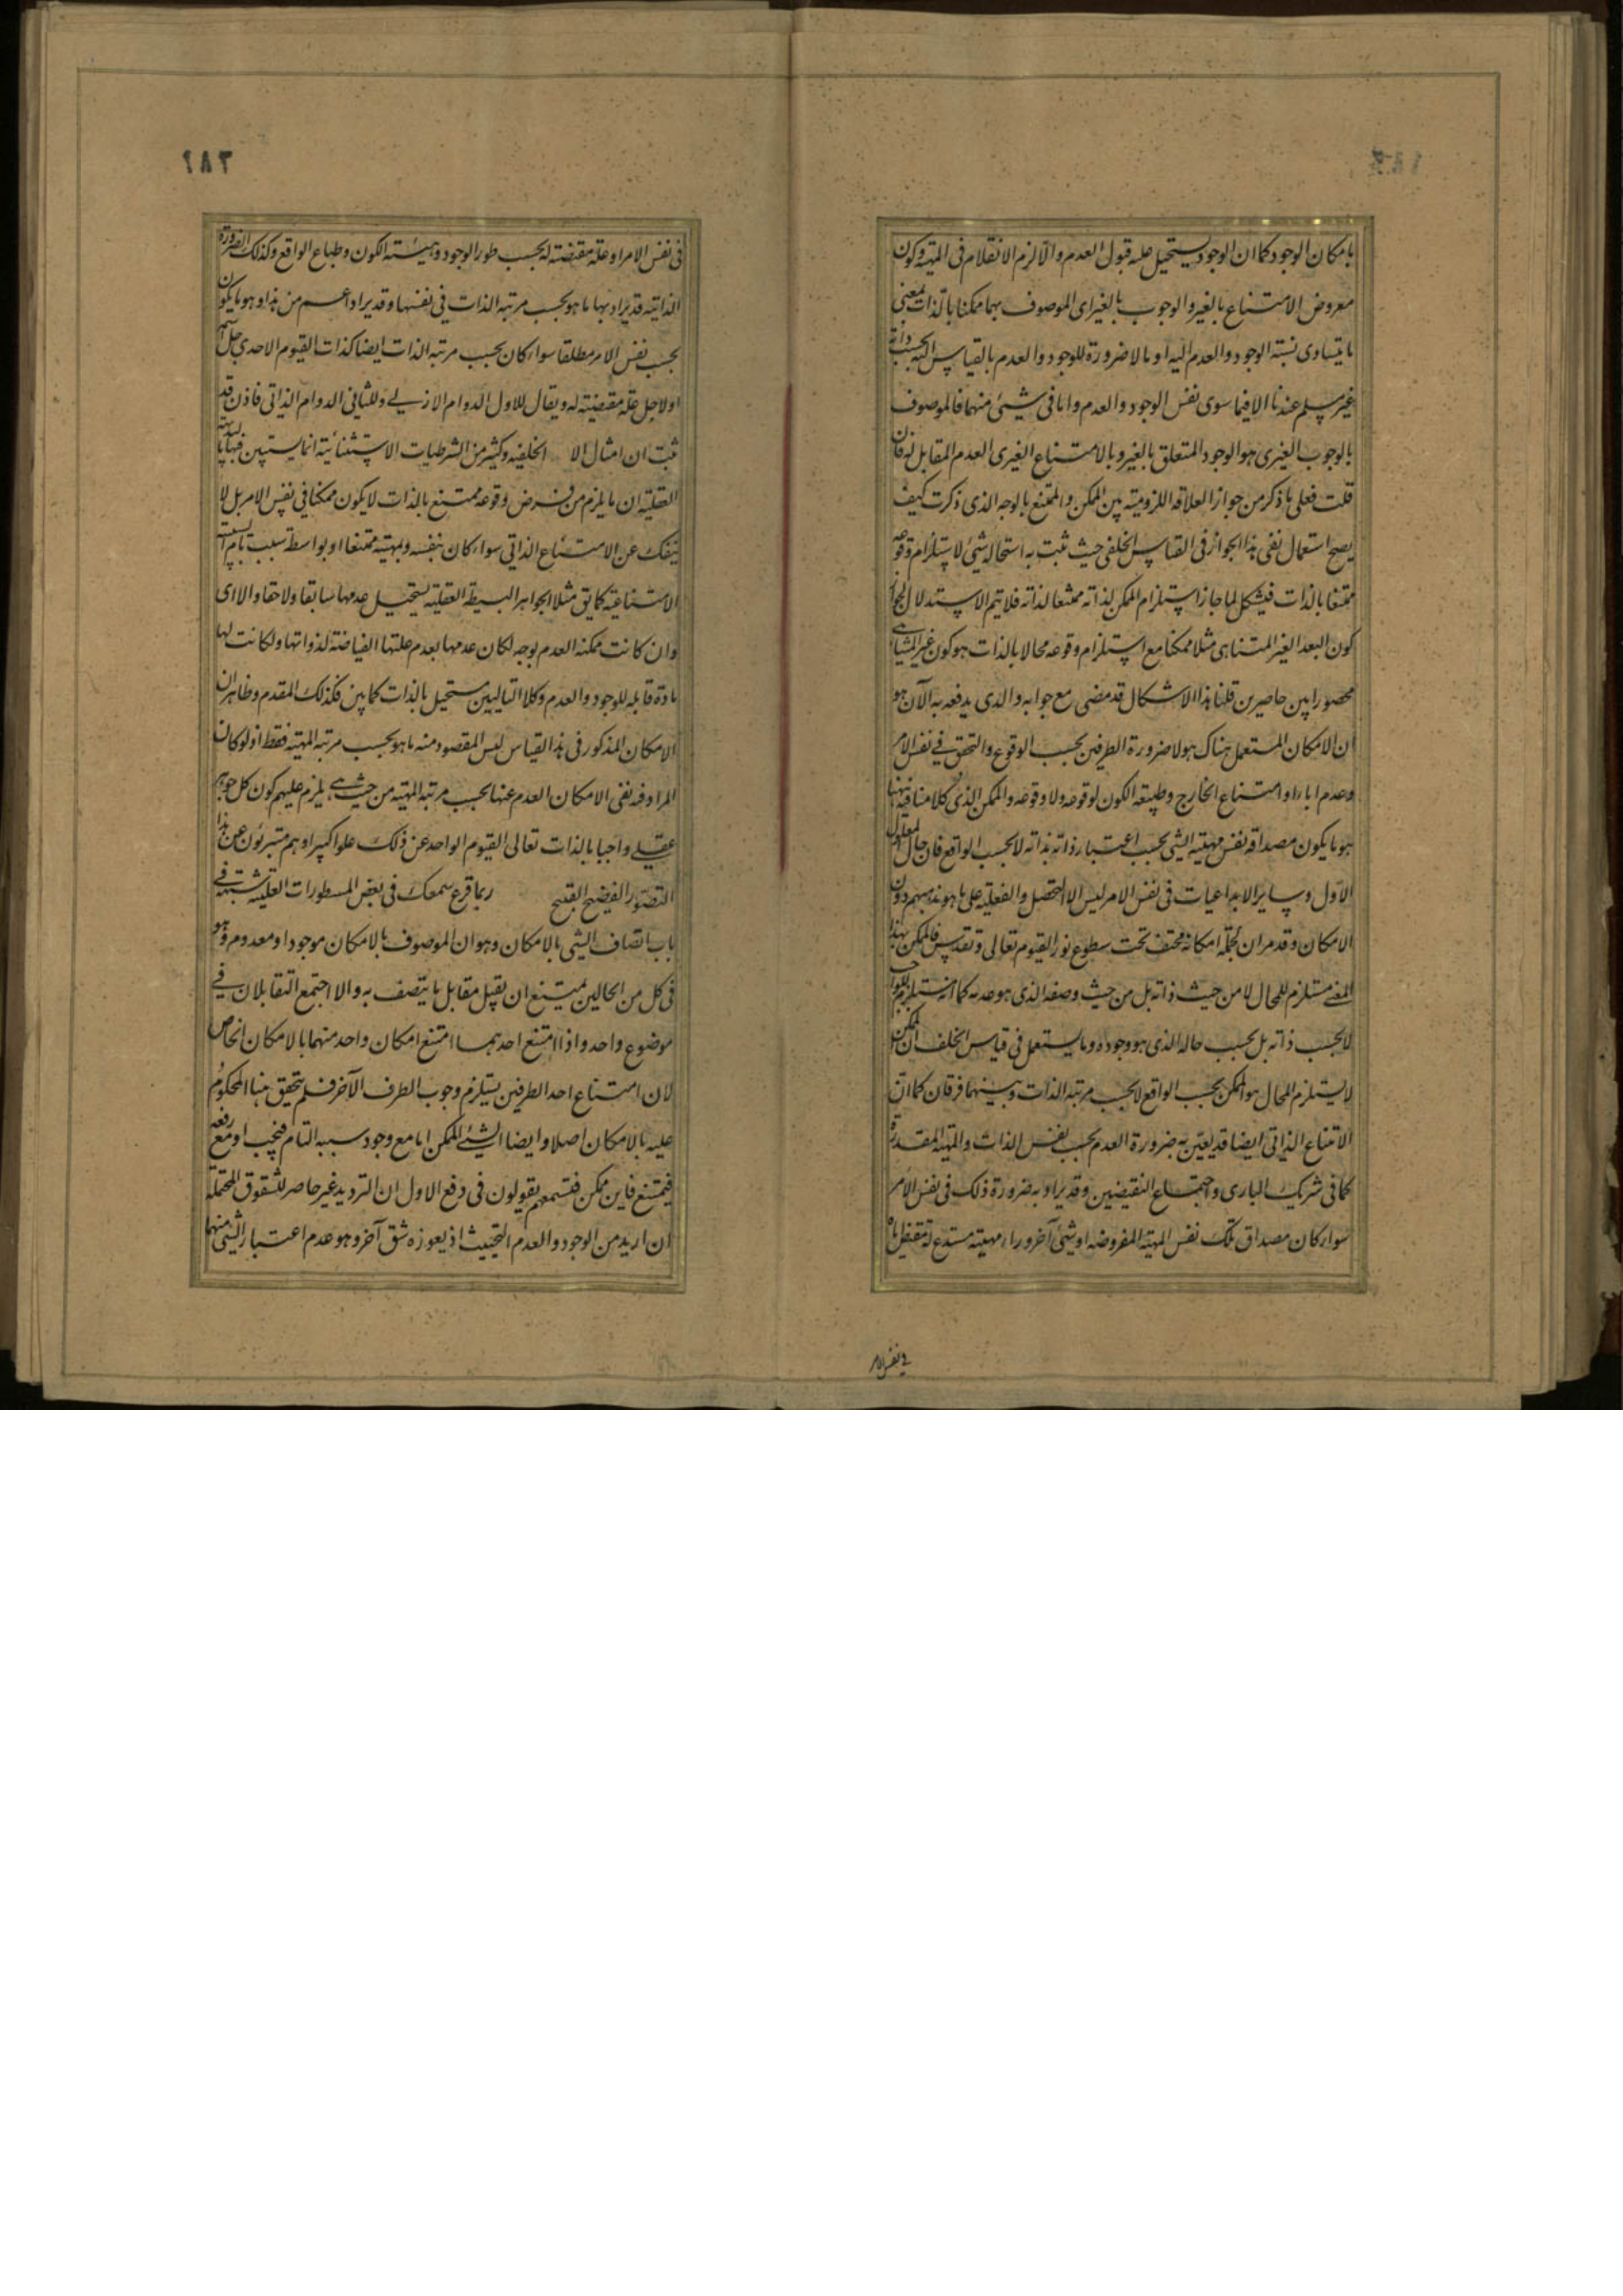 بامكان الوجود كما ان الوجود يستحيل عليه قبول العدم والا لزم الانقلاب فى المهية وكون
معروض الامتناع بالغير والوجوب بالغير اى الموصوف بهما ممكنا بالذات بمعنى
ما يتساوى نسبة الوجود والعدم اليه او بالاضرورة للوجود والعدم بالقياس اليه بحسب ذاته
غير مسلم عندنا الا فيما سوى نفس الوجود والعدم واما فى شيئ منهما فالموصوف
بالوجوب الغيرى هو الوجود المتعلق بالغير وبالامتناع الغيرى العدم المقابل له فان
قلت فعلى ما ذكر من جواز العلاقة اللزومية بين الممكن والممتنع بالوجه الذى ذكرت كيف
يصح استعمال نفى هذا الجواز فى القياس الخلفى حيث ثبت به استحالة شئ لاستلزام وقوعه
ممتنعا بالذات فيشكل لما جاز استلزام الممكن لذاته ممتنعا لذاته فلا يتم الاستدلال لجواز
كون البعد الغير المتناهى مثلا ممكنا مع استلزام وقوعه محالا بالذات هو كون غير المتناهى
محصورا بين حاصرين قلنا هذا الاشكال قد مضى مع جوابه والذى يدفعه به الآن هو
ان الامكان المستعمل هناك هو لا ضرورة الطرفين بحسب الوقوع والتحقق فى نفس الامر
وعدم اباء او امتناع الخارج وطبيعة الكون لوقوعه ولا وقوعه والممكن الذى كلامنا فيه ههنا
هو ما يكون مصداقه نفس مهية الشئ بحسب اعتبار ذاته بذاته لا بحسب الواقع فان حال المعلول
الاول وساير الابداعيات فى نفس الامر ليس الا التحصل والفعلية على ما هو مذهبهم دون
الامكان وقد مر ان ظلمة امكانه مختف تحت سطوع نور القيوم تعالى وتقدس فالممكن بهذا
المعنى مستلزم للمحال لا من حيث ذاته بل من حيث وصفه الذى هو عدمه كما انه يستلزم للواجب
لا بحسب ذاته بل بحسب حاله الذى هو وجوده وما يستعمل فى قياس الخلف ان الممكن
لا يستلزم المحال هو الممكن بحسب الواقع لا بحسب مرتبة الذات وبينهما فرقان كما ان
الامتناع الذاتى ايضا قد يعنى به ضرورة العدم بحسب نفس الذات والمهية المقدرة
كما فى شريك البارى واجتماع النقيضين وقد يراد به ضرورة ذلك فى نفس الامر
سواء كان مصداق تلك نفس المهية المفروضة او شئ آخر وراء مهيته مستدع له مقتض اياه
فى نفس الامر
٢٨٢
فى نفس الامر او علة مقتضية له بحسب طور الوجود وهيئة الكون وطباع الواقع وكذلك الضرورة
الذاتية قد يراد بها ما هو بحسب مرتبة الذات فى نفسها وقد يراد اعم من هذا وهو ما يكون
بحسب نفس الامر مطلقا سواء كان بحسب مرتبة الذات ايضا كذات القيوم الاحدى جل اسمه
او لاجل علة مقتضية له ويقال للاول الدوام الازلى وللثانى الدوام الذاتى فاذن قد
ثبت ان امثال الا الخلفية وكثير من الشرطيات الاستثنائية انما يستبين فيها بالبديهة
العقلية ان ما يلزم من فرض وقوعه ممتنع بالذات لا يكون ممكنا فى نفس الامر بل لا
ينفك عن الامتناع الذاتى سواء كان بنفسه وبمهيته ممتنعا او بواسطة سبب تام السببية
الامتناعية كما يق مثلا الجواهر البسيطة العقلية يستحيل عدمها سابقا ولاحقا والا اى
وان كانت ممكنة العدم بوجه لكان عدمها بعدم علتها الفياضة لذواتها ولكانت لها
مادة قابلة للوجود والعدم وكلا التاليين مستحيل بالذات كما بين فكذلك المقدم وظاهر ان
الامكان المذكور فى هذا القياس ليس المقصود منه ما هو بحسب مرتبة المهية فقط اذ لو كان
المراد فيه نفى الامكان العدم عنها بحسب مرتبة المهية من حيث هى يلزم عليهم كون كل جوهر
عقلى واجبا بالذات تعالى القيوم الواحد عن ذلك علوا كبيرا وهم متبرئون عن هذا
التصور الفضيح القبيح ربما قرع سمعك فى بعض المسطورات العقلية شبهة فى
باب اتصاف الشئ بالامكان وهو ان الموصوف بالامكان موجود او معدوم وهو
فى كل من الحالين يمتنع ان يقبل مقابل ما يتصف به والا اجتمع المتقابلان فى
موضوع واحد واذا امتنع احدهما امتنع امكان واحد منهما بالامكان الخاص
لان امتناع احد الطرفين يستلزم وجوب الطرف الآخر فلم يتحقق هنا المحكوم
عليه بالامكان اصلا وايضا الشئ الممكن اما مع وجود سببه التام فيجب او مع رفعه
فيمتنع فاين ممكن فتسمعهم يقولون فى دفع الاول ان الترديد غير حاصر للشقوق المحتملة
ان اريد من الوجود والعدم التحييث اذ يعوزه شق آخر وهو عدم اعتبار الشئ منهما